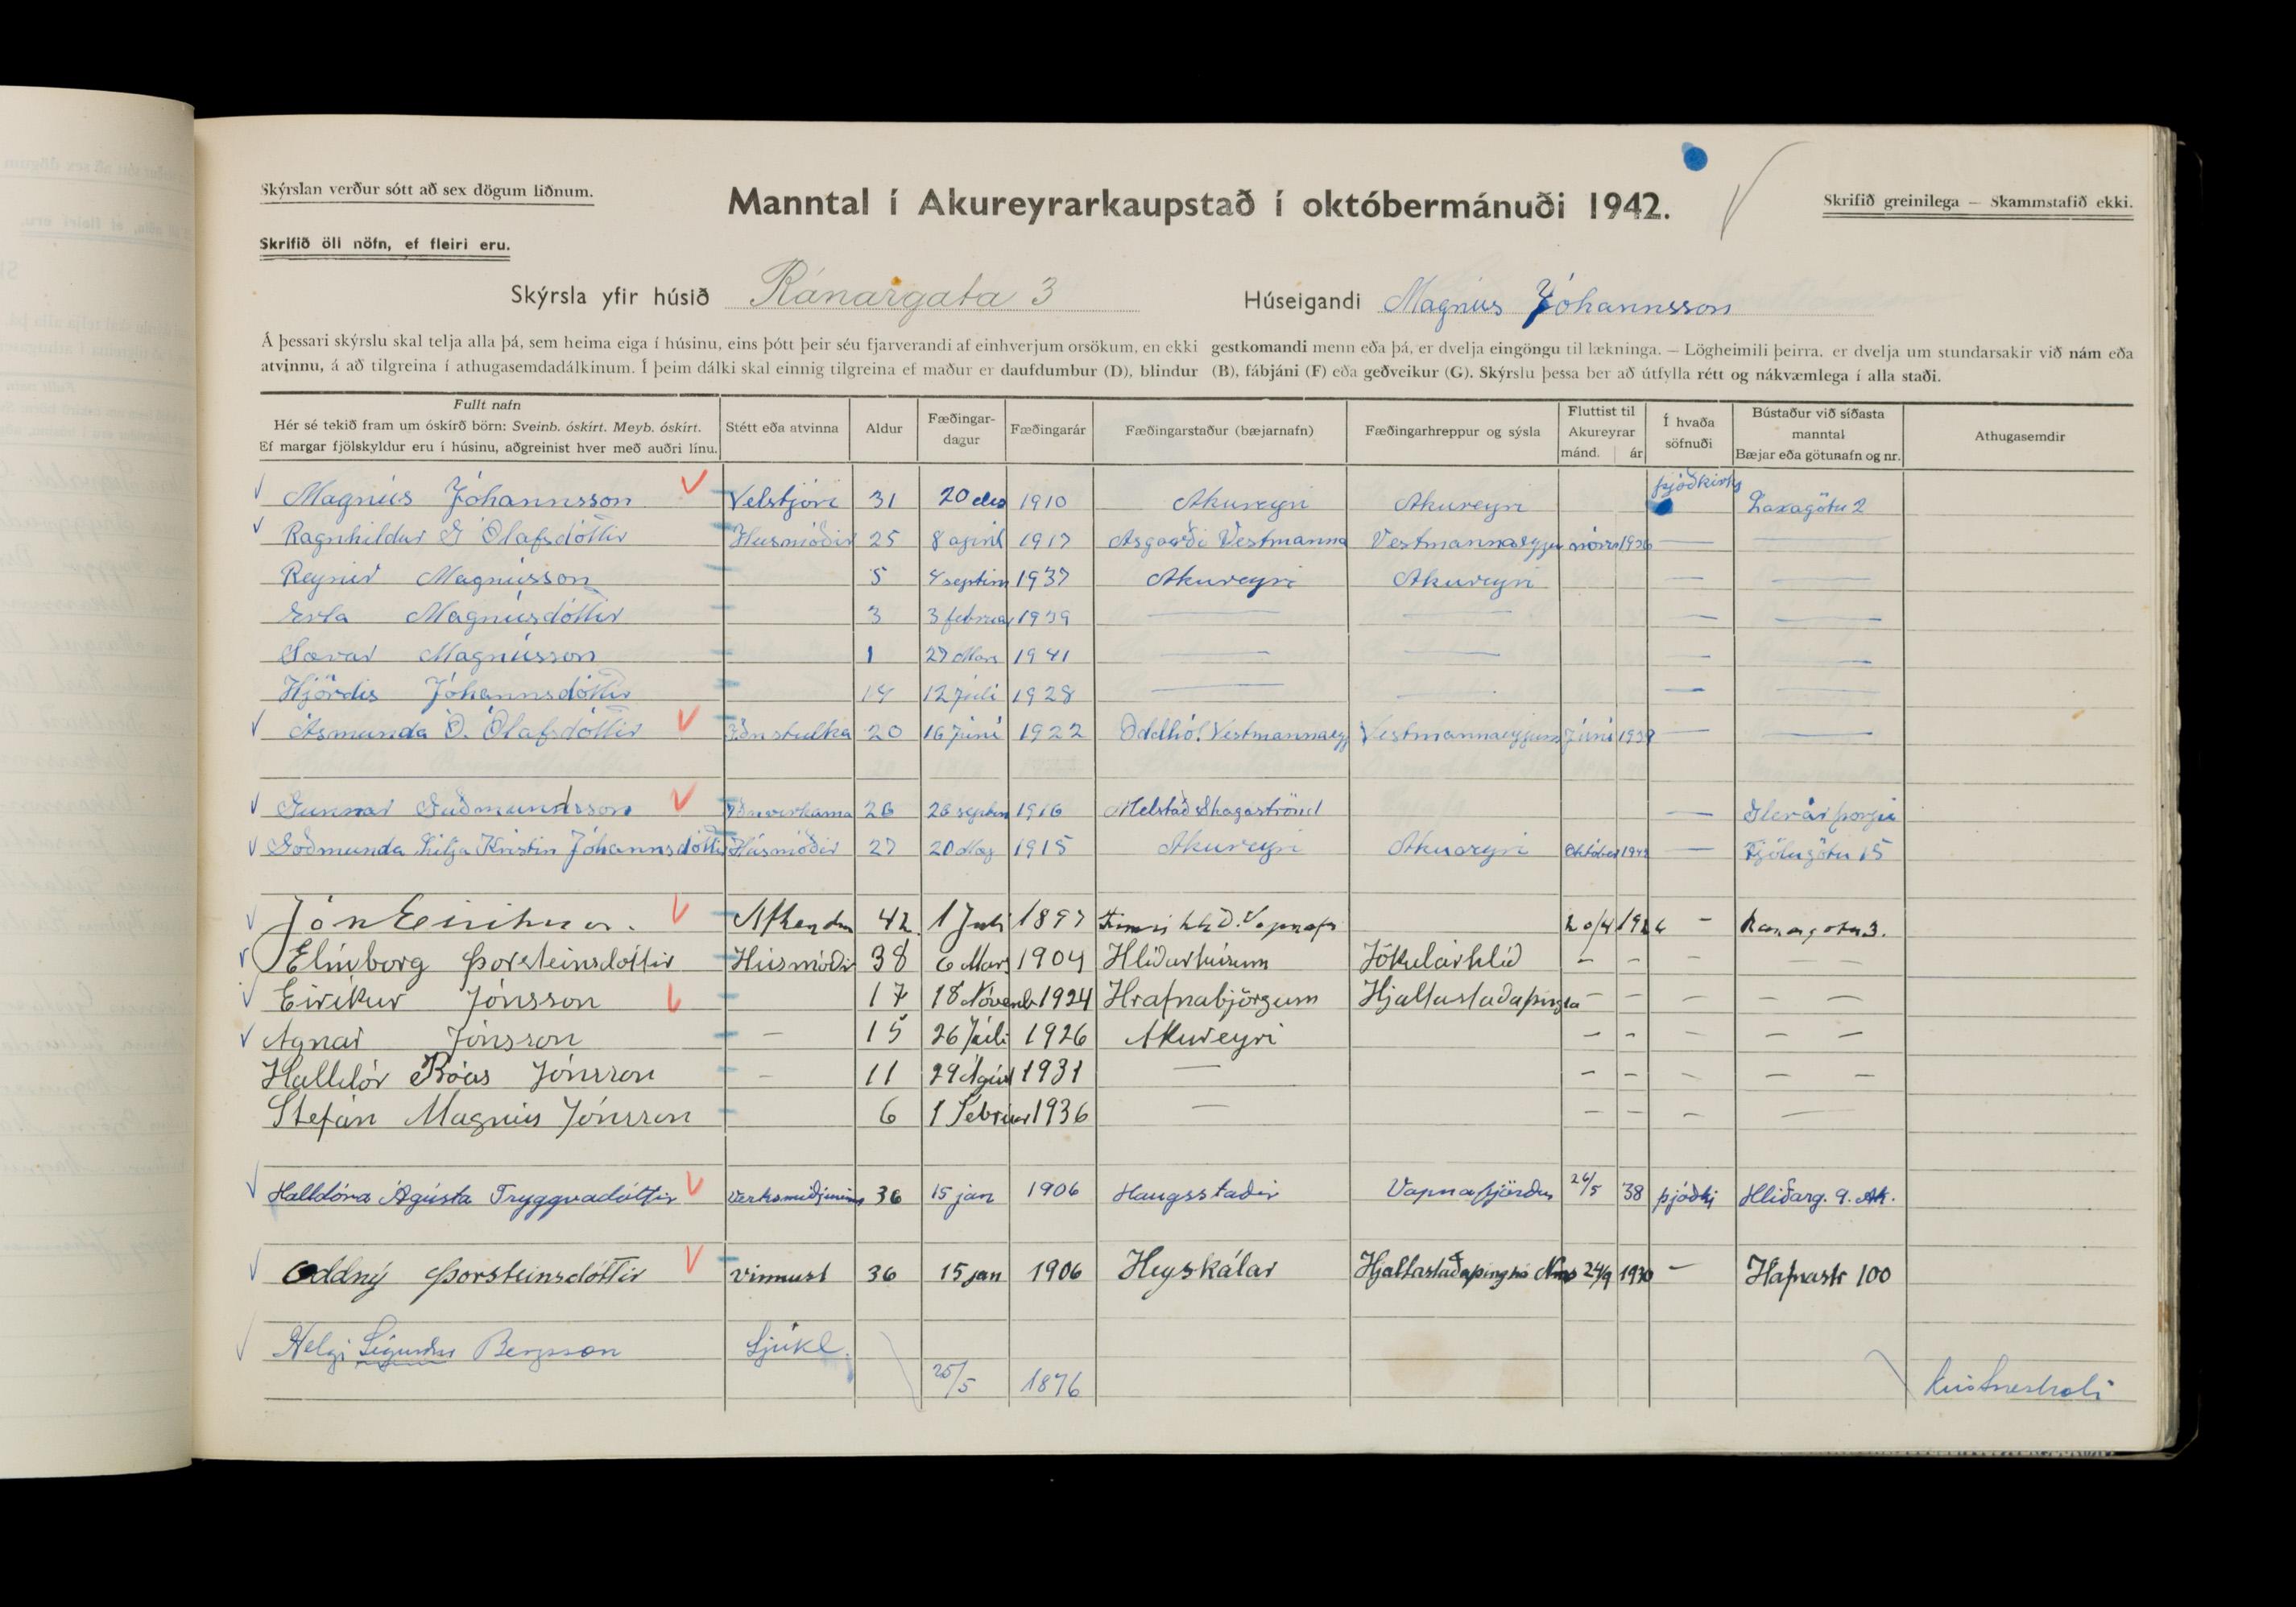 Skýrslan verður sótt að sex dögum liðnum.
Manntal í Akureyrarkaupstað í októbermánuði 1942.
Skrifið greinilega — Skammstafið ekki.
Skrifið öll nöfn, ef fleiri eru.
Skýrsla yfir húsið Ránargata 3 Húseigandi Magnús Jóhannsson
Á þessari skýrslu skal telja alla þá, sem heima eiga í húsinu, eins þótt þeir séu fjarverandi af einhverjum orsökum, en ekki gestkomandi menn eða þá, er dvelja eingöngu til lækninga. — Lögheimili þeirra, er dvelja um stundarsakir við nám eða
atvinnu, á að tilgreina í athugasemdadálkinum. Í þeim dálki skal einnig tilgreina ef maður er daufdumbur (D), blindur (B), fábjáni (F) eða geðveikur (G). Skýrslu þessa ber að útfylla rétt og nákvæmlega í alla staði.
Fullt nafn
Hér sé tekið fram um óskírð börn: Sveinb. óskírt. Meyb. óskírt.
Ef margar fjölskyldur eru í húsinu, aðgreinist hver með auðri línu.
Stétt eða atvinna
Aldur
Fæðingar-
dagur
Fæðingarár
Fæðingarstaður (bæjarnafn)
Fæðingarhreppur og sýsla
Fluttist til
Akureyrar
mánd. ár
Í hvaða
söfnuði
Bústaður við síðasta
manntal
Bæjar eða götunafn og nr.
Athugasemdir
Magnús Jóhannsson Velstjóri 31 20 des 1910 Akureyri Akureyri þjóðkirkj Laxagötu 2
Ragnhildur Ólafsdóttir Húsmóðir 25 8 apríl 1917 Asgarði Vestmanna Vestmannaeyju — —
Reynir Magnússon 5 4 septem 1937 Akureyri Akureyri — —
Erla Magnúsdóttir 3 3 februar 1939 — — — —
Sævar Magnússon 1 27 Mars 1941 — — — —
Hjördis Jóhannsdóttir 14 12 Júli 1928 — — — —
Ásmunda Ó. Ólafsdóttir Iðnstulka 20 16 Júni 1922 Oddhól Vestmannaey Vestmannaeyjum Júni — —
Gunnar Guðmundsson Iðnverkama 26 26 septem 1916 Melstað Skagaströnd — Glerárþorpi
Goðmunda Lilja Kristin Jóhannsdótti Húsmóðir 27 20 Maj 1915 Akureyri Akureyri Október — Fjólugötu 15
Jón Eirikur. 42 1 Juli 1897 20/4 — Ranargotu 3.
Elínborg Þorsteinsdóttir Húsmóðir 38 6 Mars 1904 Hlíðarhúsum Jökulárhlíð — — — — —
Eiríkur Jónsson 17 18 Novemb 1924 Hrafnabjörgum Hjaltastaðaþingha — — — — —
Agnar Jónsson — 15 26 Júli 1926 Akureyri — — — —
Halldór Róas Jónsson — 11 29 Águst 1931 — — — — — —
Stefán Magnús Jónsson 6 1 Februar 1936 — — — — —
Halldóra Ágústa Tryggvadóttir 36 15 jan 1906 Haugsstaðir Vopnafjörður 26/5 38 þjóðkj Hliðarg. 9. Ak.
Oddný Þorsteinsdóttir vinnust 36 15 jan 1906 Heyskálar Hjaltastaðaþinghá 24/9 1930 — Hafnastr 100
Helgi Sigurður Bergsson Sjúkl.
25/5 1876 Kristneshæli